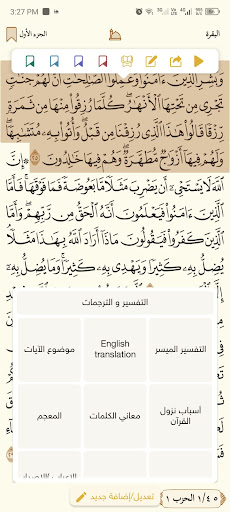 3:27 PM
البقرة
الجزء الأول
وَبَشِّرِ الَّذِينَ ءَامَنُوا وَعَمِلُوا الصَّٰلِحَٰتِ أَنَّ لَهُمْ جَنَّٰتٍ
تَجْرِى مِن تَحْتِهَا الْأَنْهَٰرُ كُلَّمَا رُزِقُوا مِنْهَا مِن ثَمَرَةٍ
رِّزْقًا قَالُوا هَٰذَا الَّذِى رُزِقْنَا مِن قَبْلُ وَأُتُوا بِهِ مُتَشَٰبِهًا
وَلَهُمْ فِيهَا أَزْوَٰجٌ مُّطَهَّرَةٌ وَهُمْ فِيهَا خَٰلِدُونَ ٢٥ إِنَّ
اللَّهَ لَا يَسْتَحْىِ أَن يَضْرِبَ مَثَلًا مَّا بَعُوضَةً فَمَا فَوْقَهَا فَأَمَّا
الَّذِينَ ءَامَنُوا فَيَعْلَمُونَ أَنَّهُ الْحَقُّ مِن رَّبِّهِمْ وَأَمَّا
الَّذِينَ كَفَرُوا فَيَقُولُونَ مَاذَا أَرَادَ اللَّهُ بِهَٰذَا مَثَلًا
يُضِلُّ بِهِ كَثِيرًا وَيَهْدِى بِهِ كَثِيرًا وَمَا يُضِلُّ بِهِ
التفسير و الترجمات
التفسير الميسر
English translation
موضوع الآيات
أسباب نزول القرآن
معاني الكلمات
المعجم
تعديل/إضافة جديد
١/٤٥ الحزب ١